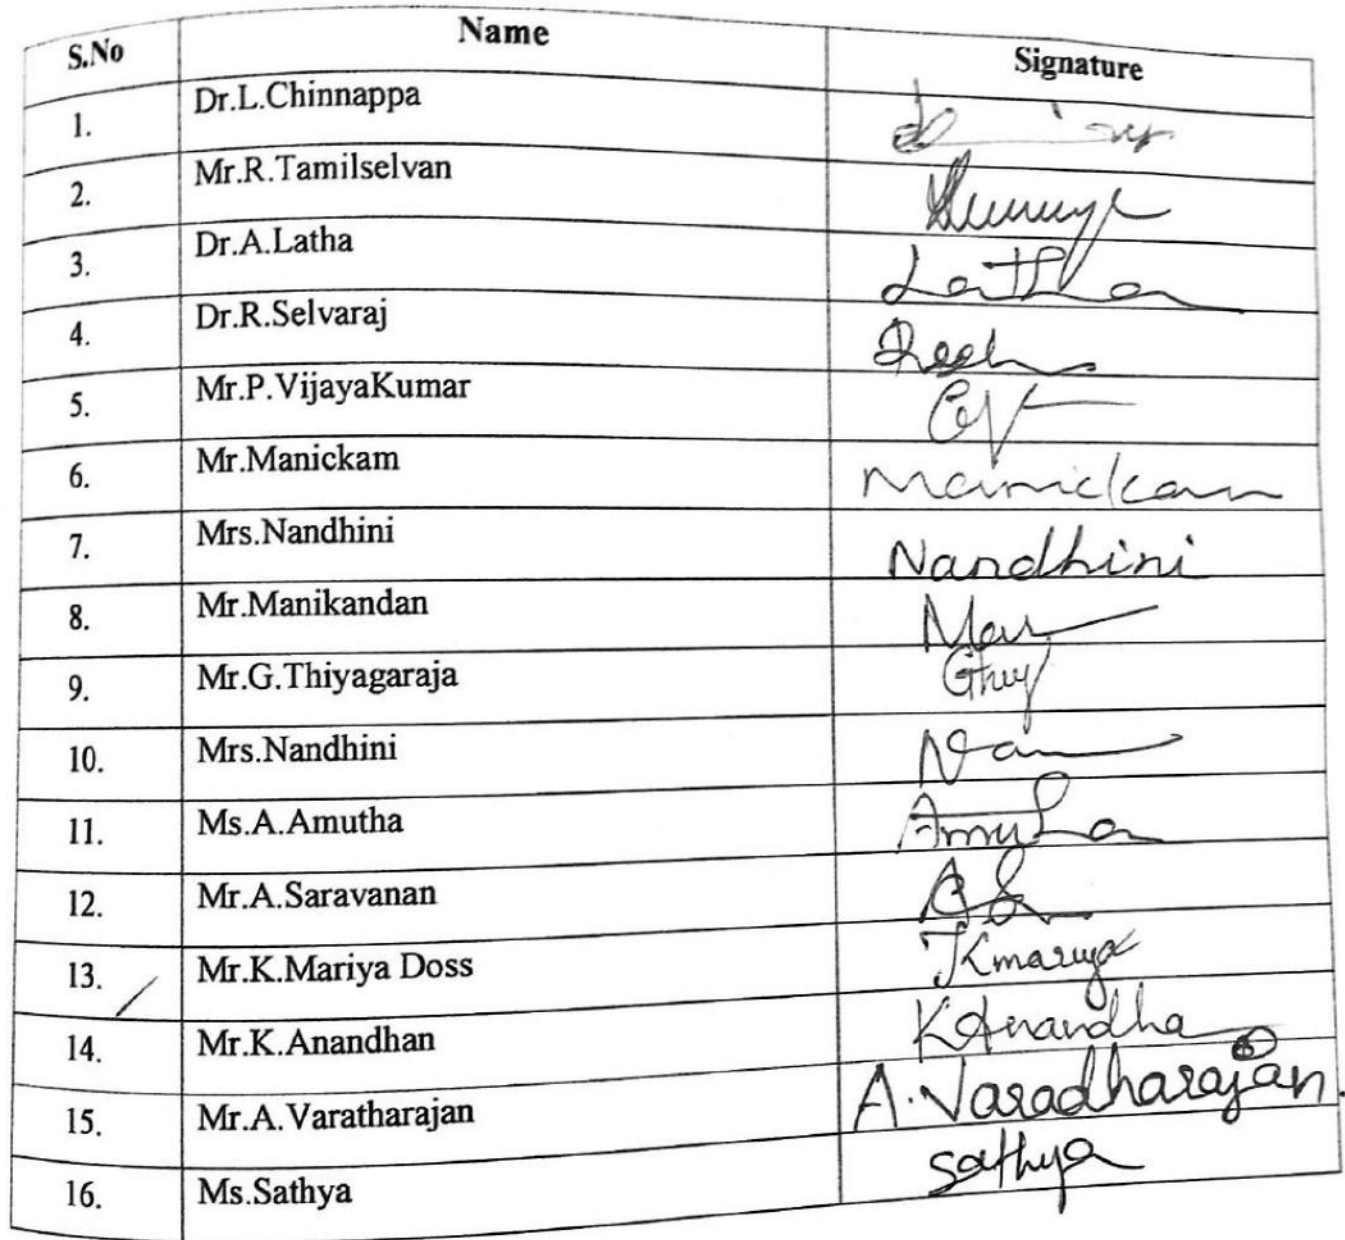 S.No Name Signature
1. Dr.L.Chinnappa
2. Mr.R.Tamilselvan
3. Dr.A.Latha Latha
4. Dr.R.Selvaraj
5. Mr.P.VijayaKumar
6. Mr.Manickam Manickam
7. Mrs.Nandhini Nandhini
8. Mr.Manikandan
9. Mr.G.Thiyagaraja
10. Mrs.Nandhini
11. Ms.A.Amutha
12. Mr.A.Saravanan
13. Mr.K.Mariya Doss Kmariya
14. Mr.K.Anandhan K Anandha
15. Mr.A.Varatharajan A.Varadharajan.
16. Ms.Sathya Sathya